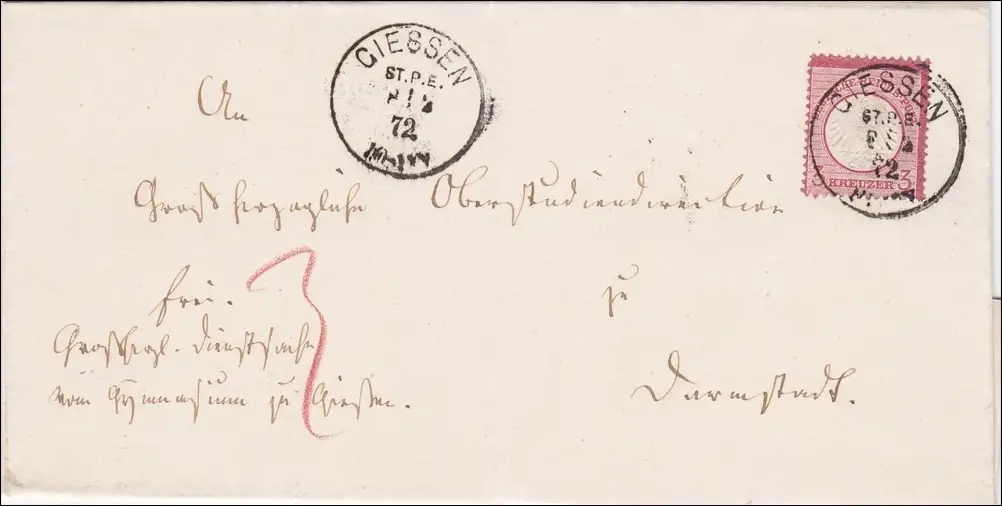 GIESSEN
ST.P.E.
72
GIESSEN
ST.P.E.
72
KREUZER 3
An
Grossherzogliche Oberstudiendirection
zu
Darmstadt.
frei.
Grossherzl. Dienstsache
vom Gymnasium zu Giessen.
3